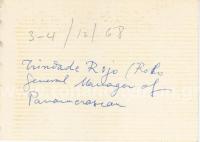 3-4/12/68
Trinidade Rojo (Rolo
General Manager of
Panamerasian